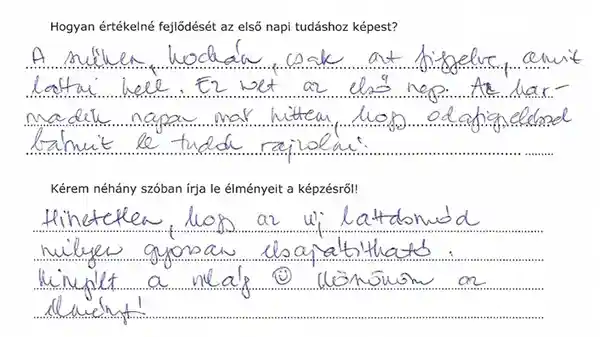 Hogyan értékelné fejlődését az első napi tudáshoz képest?
A kockán, csak azt figyelve, amit
látni kell. Ez volt az első nap. A har-
madik napon már hittem, hogy odafigyeléssel
bármit le tudok rajzolni.
Kérem néhány szóban írja le élményeit a képzésről!
Hihetetlen, hogy az új látásmód
milyen gyorsan elsajátítható.
Kinyílt a világ ☺ Köszönöm az
élményt!